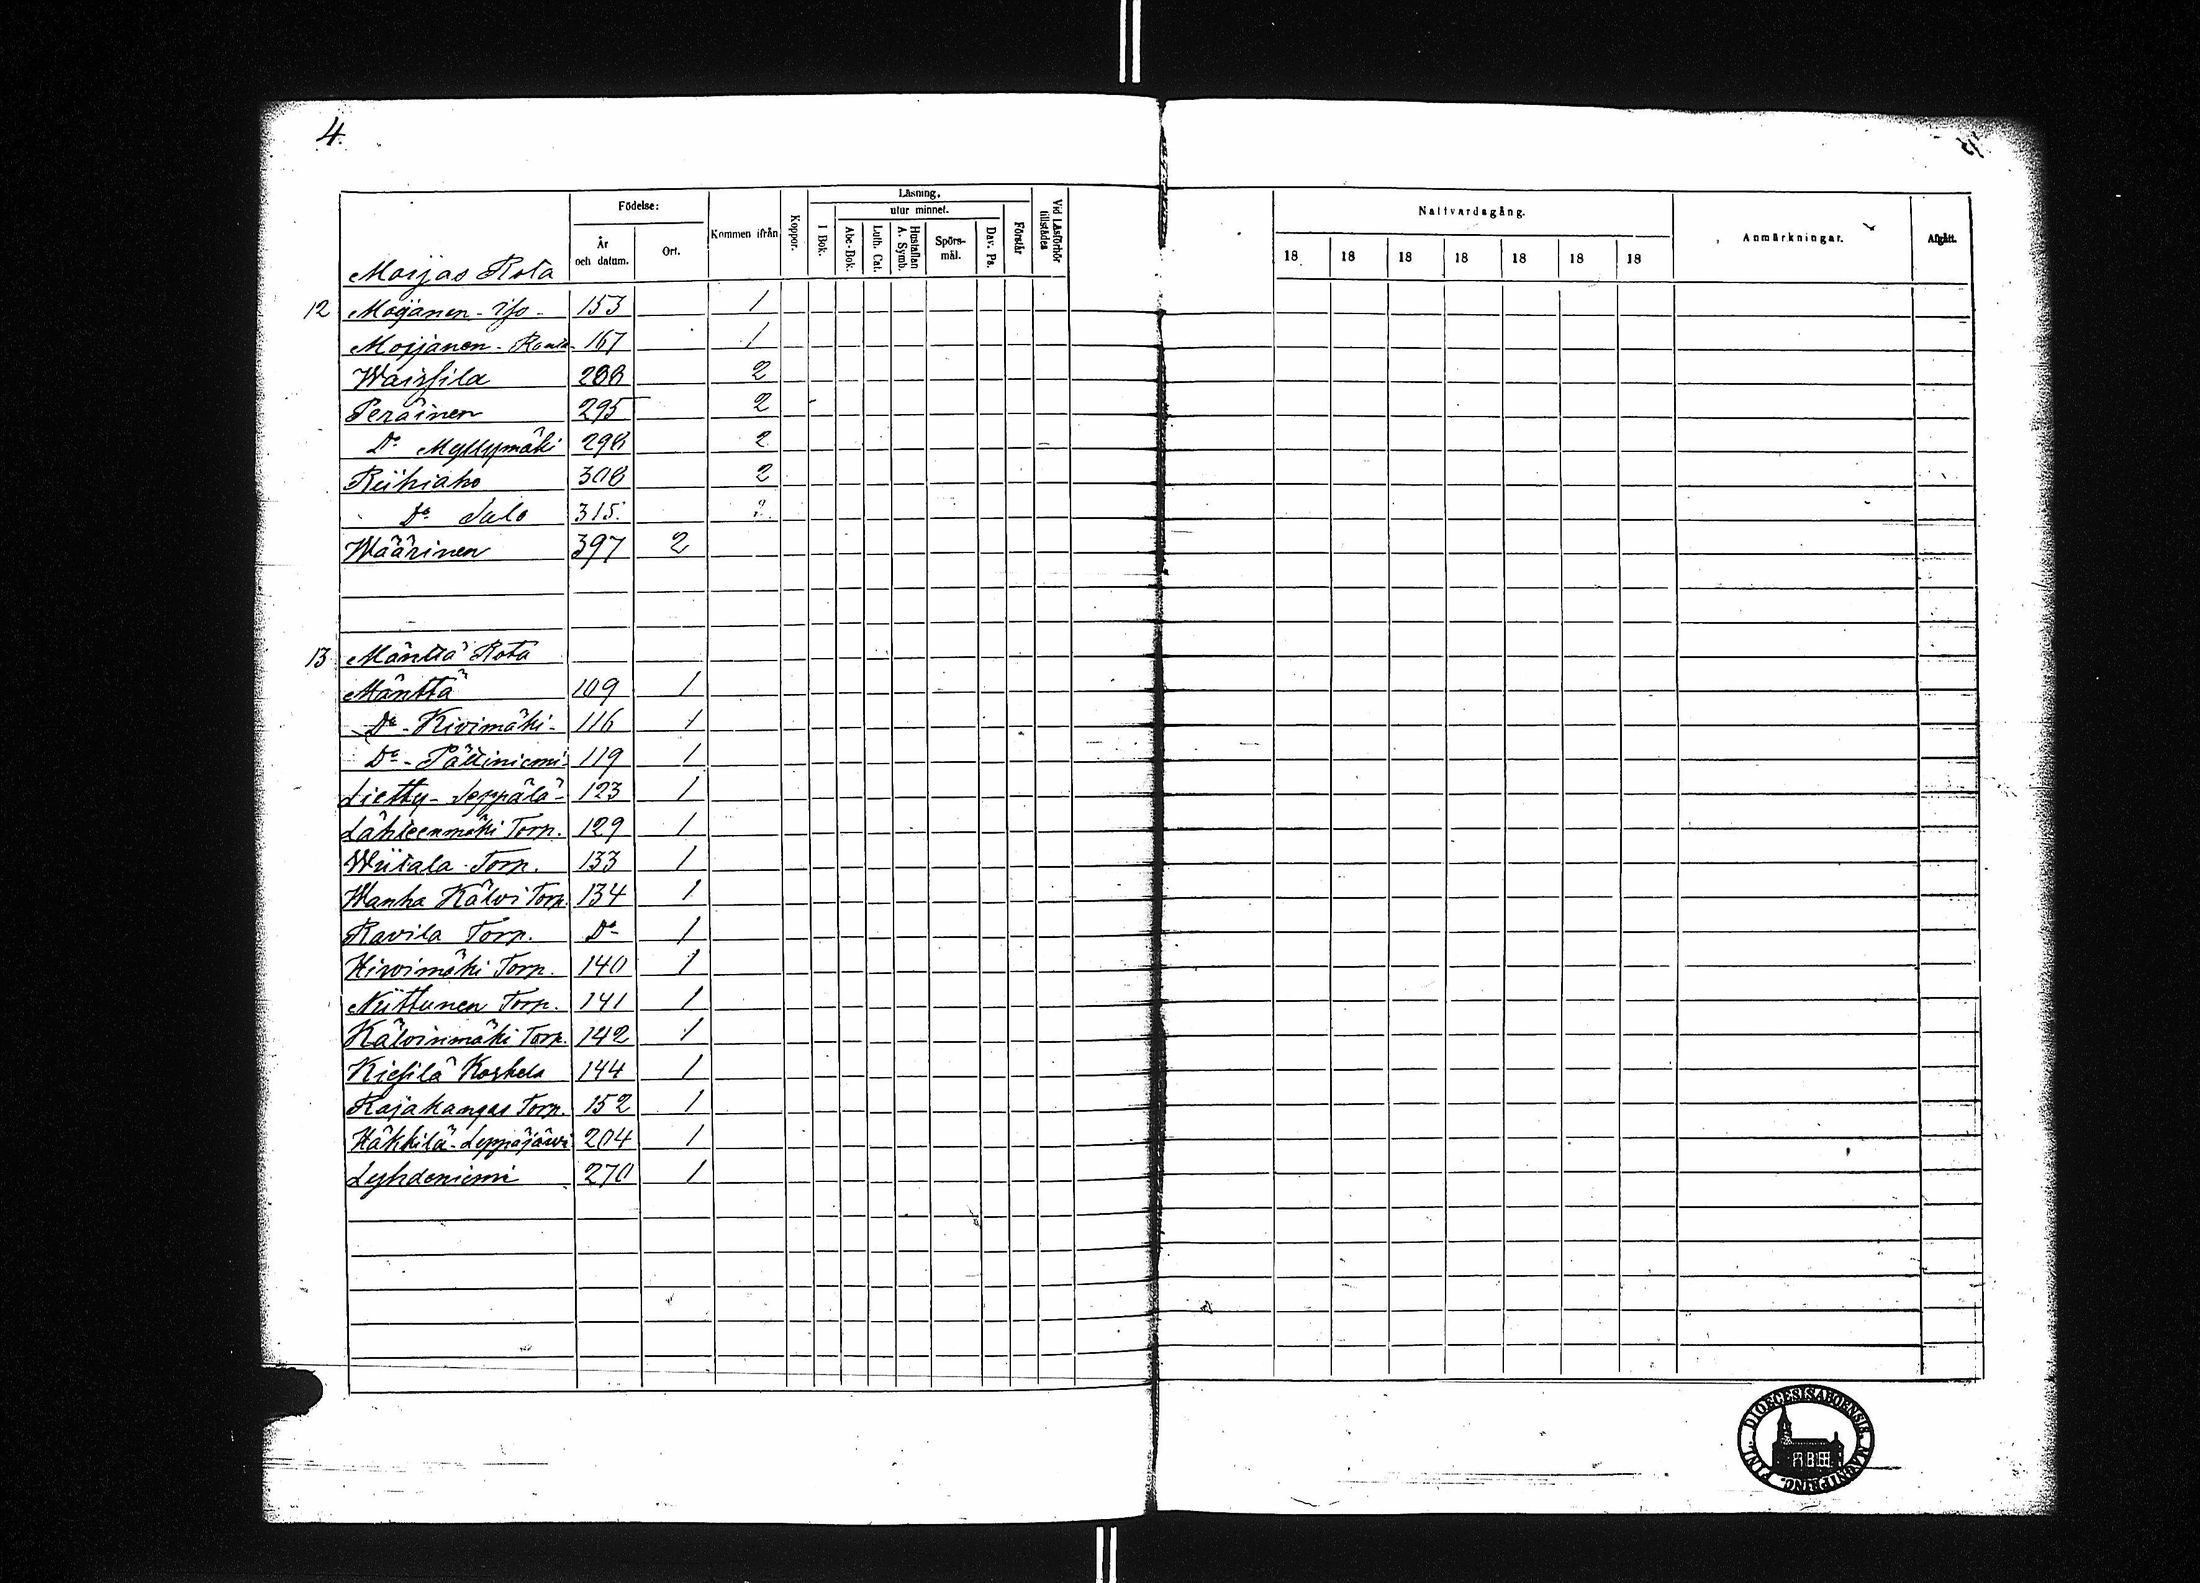 4.
Födelse:
År och datum.
Ort.
Kommen ifrån
Koppor.
Läsning,
I Bok.
utur minnet.
Abc-Bok.
Luth. Cat.
Hustaflan A. Symb.
Spörs-mål.
Dav. Ps.
Förstår
Vid Läsförhör tillstädes
Nattvardsgång.
18 18 18 18 18 18 18
Anmärkningar.
Afgått.
Moijas Rota
12 Moijanen - Iso - 153 1
Moijanen - Ranta - 167 1
Waissila 288 2
Peräinen 295 2
Do Myllymäki 298 2
Riihiaho 308 2
Do Salo 315. 2.
Wäärinen 397 2
13 Mänttä Rota
Mänttä 109 1
Do - Kivimäki - 116 1
Do - Pättiniemi - 119 1
Lietty - Seppälä - 123 1
Lähteenmäki Torp. 129 1
Wiitala Torp. 133 1
Wanha Kälvi Torp. 134 1
Ravila Torp. Do 1
Hirvimäki Torp. 140 1
Niittunen Torp. 141 1
Kälvinmäki Torp. 142 1
Kiesilä Koskela 144 1
Rajakangas Torp. 152 1
Häkkilä - Leppäjärvi 204 1
Lyhdeniemi 270 1
DIOECESIS ABOENSIS. MAGNI PRINC. FINL.